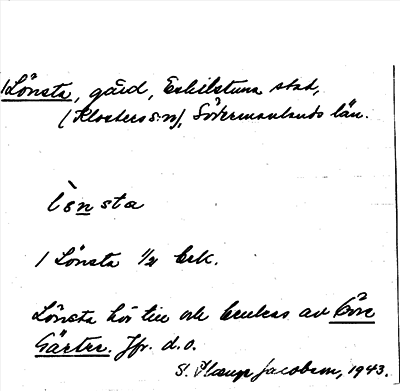 Lönsta, gård, Eskilstuna stad,
(Klosters s:n), Södermanlands län.
lö̀nsta
1 Lönsta 1/4 brk.
Lönsta hör till och brukas av Söre
Gärtre. Jfr. d.o.
S. Plaup Jacobsen, 1943.